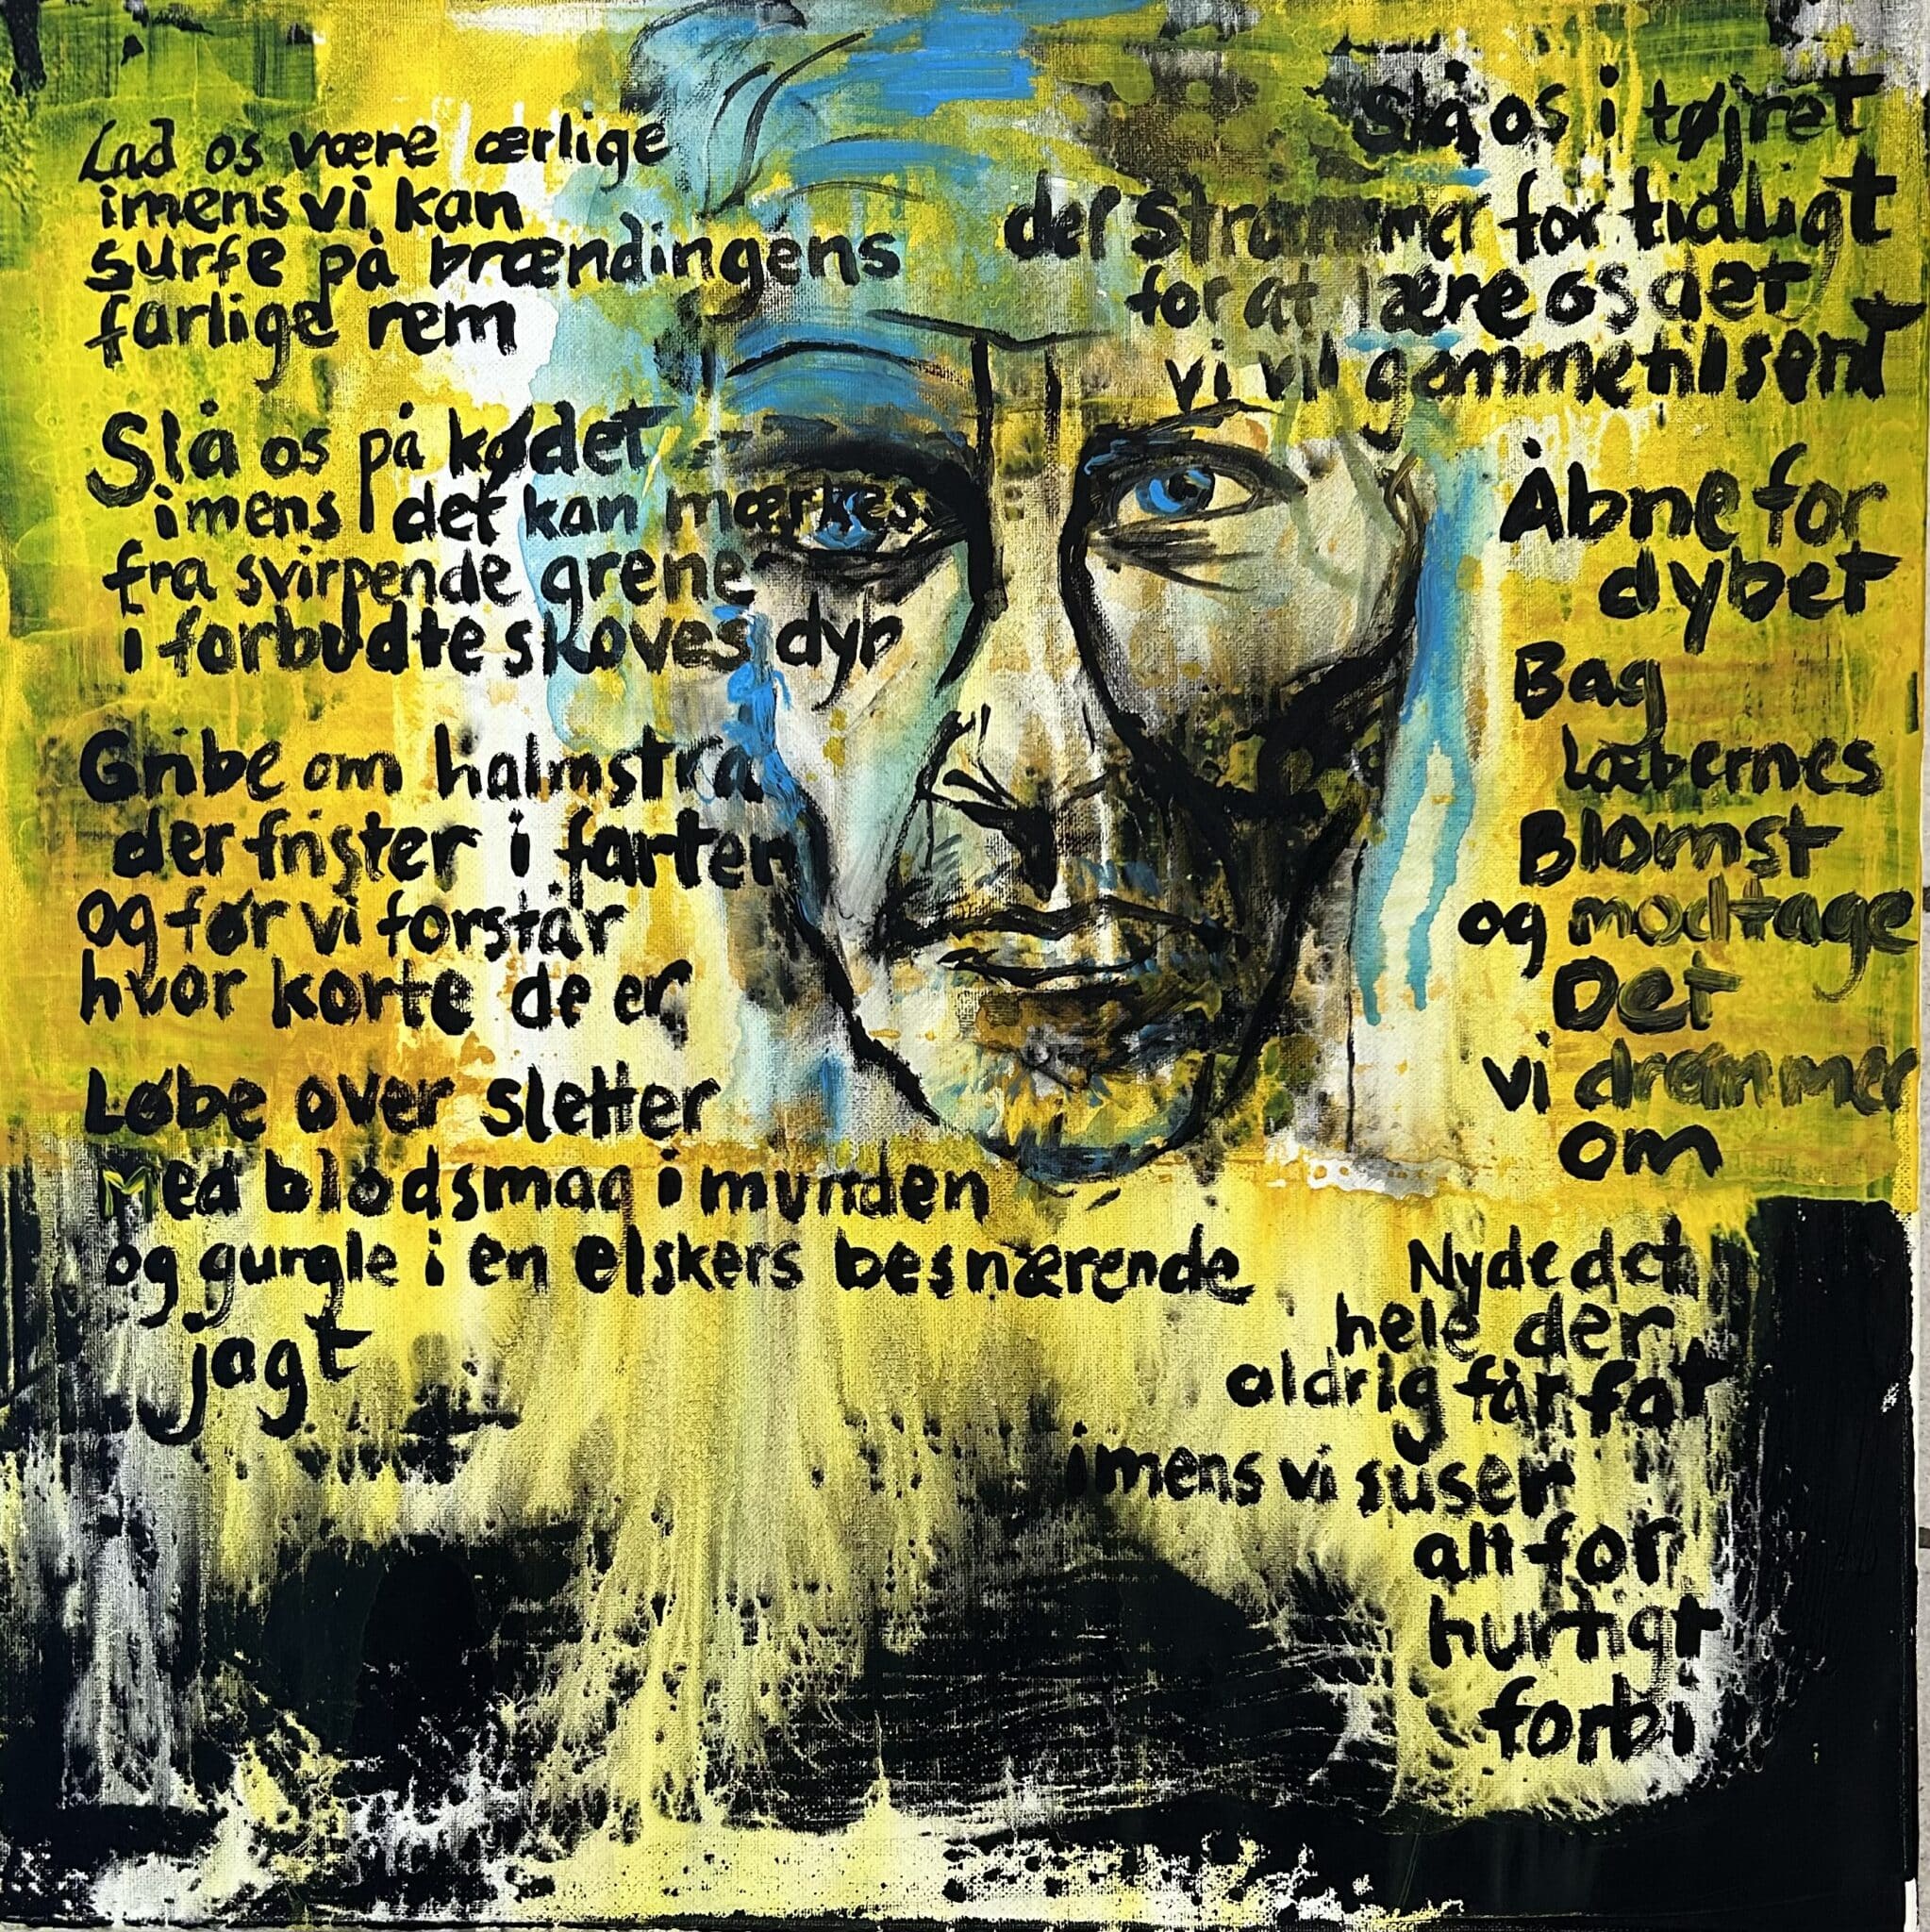 Lad os være ærlige
imens vi kan
surfe på brændingens
farlige rem
Slå os på kødet
imens det kan mærkes
fra svirpende grene
i forbudte skoves dyb
Gribe om halmstrå
der frister i farten
og før vi forstår
hvor korte de er
Løbe over sletter
Med blodsmag i munden
og gurgle i en elskers besnærende
jagt
Slå os i tøjret
der strammer for tidligt
for at lære os det
vi vil gemme til sent
Åbne for
dybet
Bag
Læbernes
Blomst
og modtage
Det
vi drømmer
om
Nyde det
hele der
aldrig får fat
imens vi suser
alt for
hurtigt
forbi